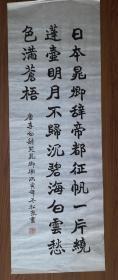 日本晁卿辞帝都征帆一片繞
蓬壺明月不歸沉碧海白雲愁
色滿蒼梧
唐李白詩哭晁卿衡